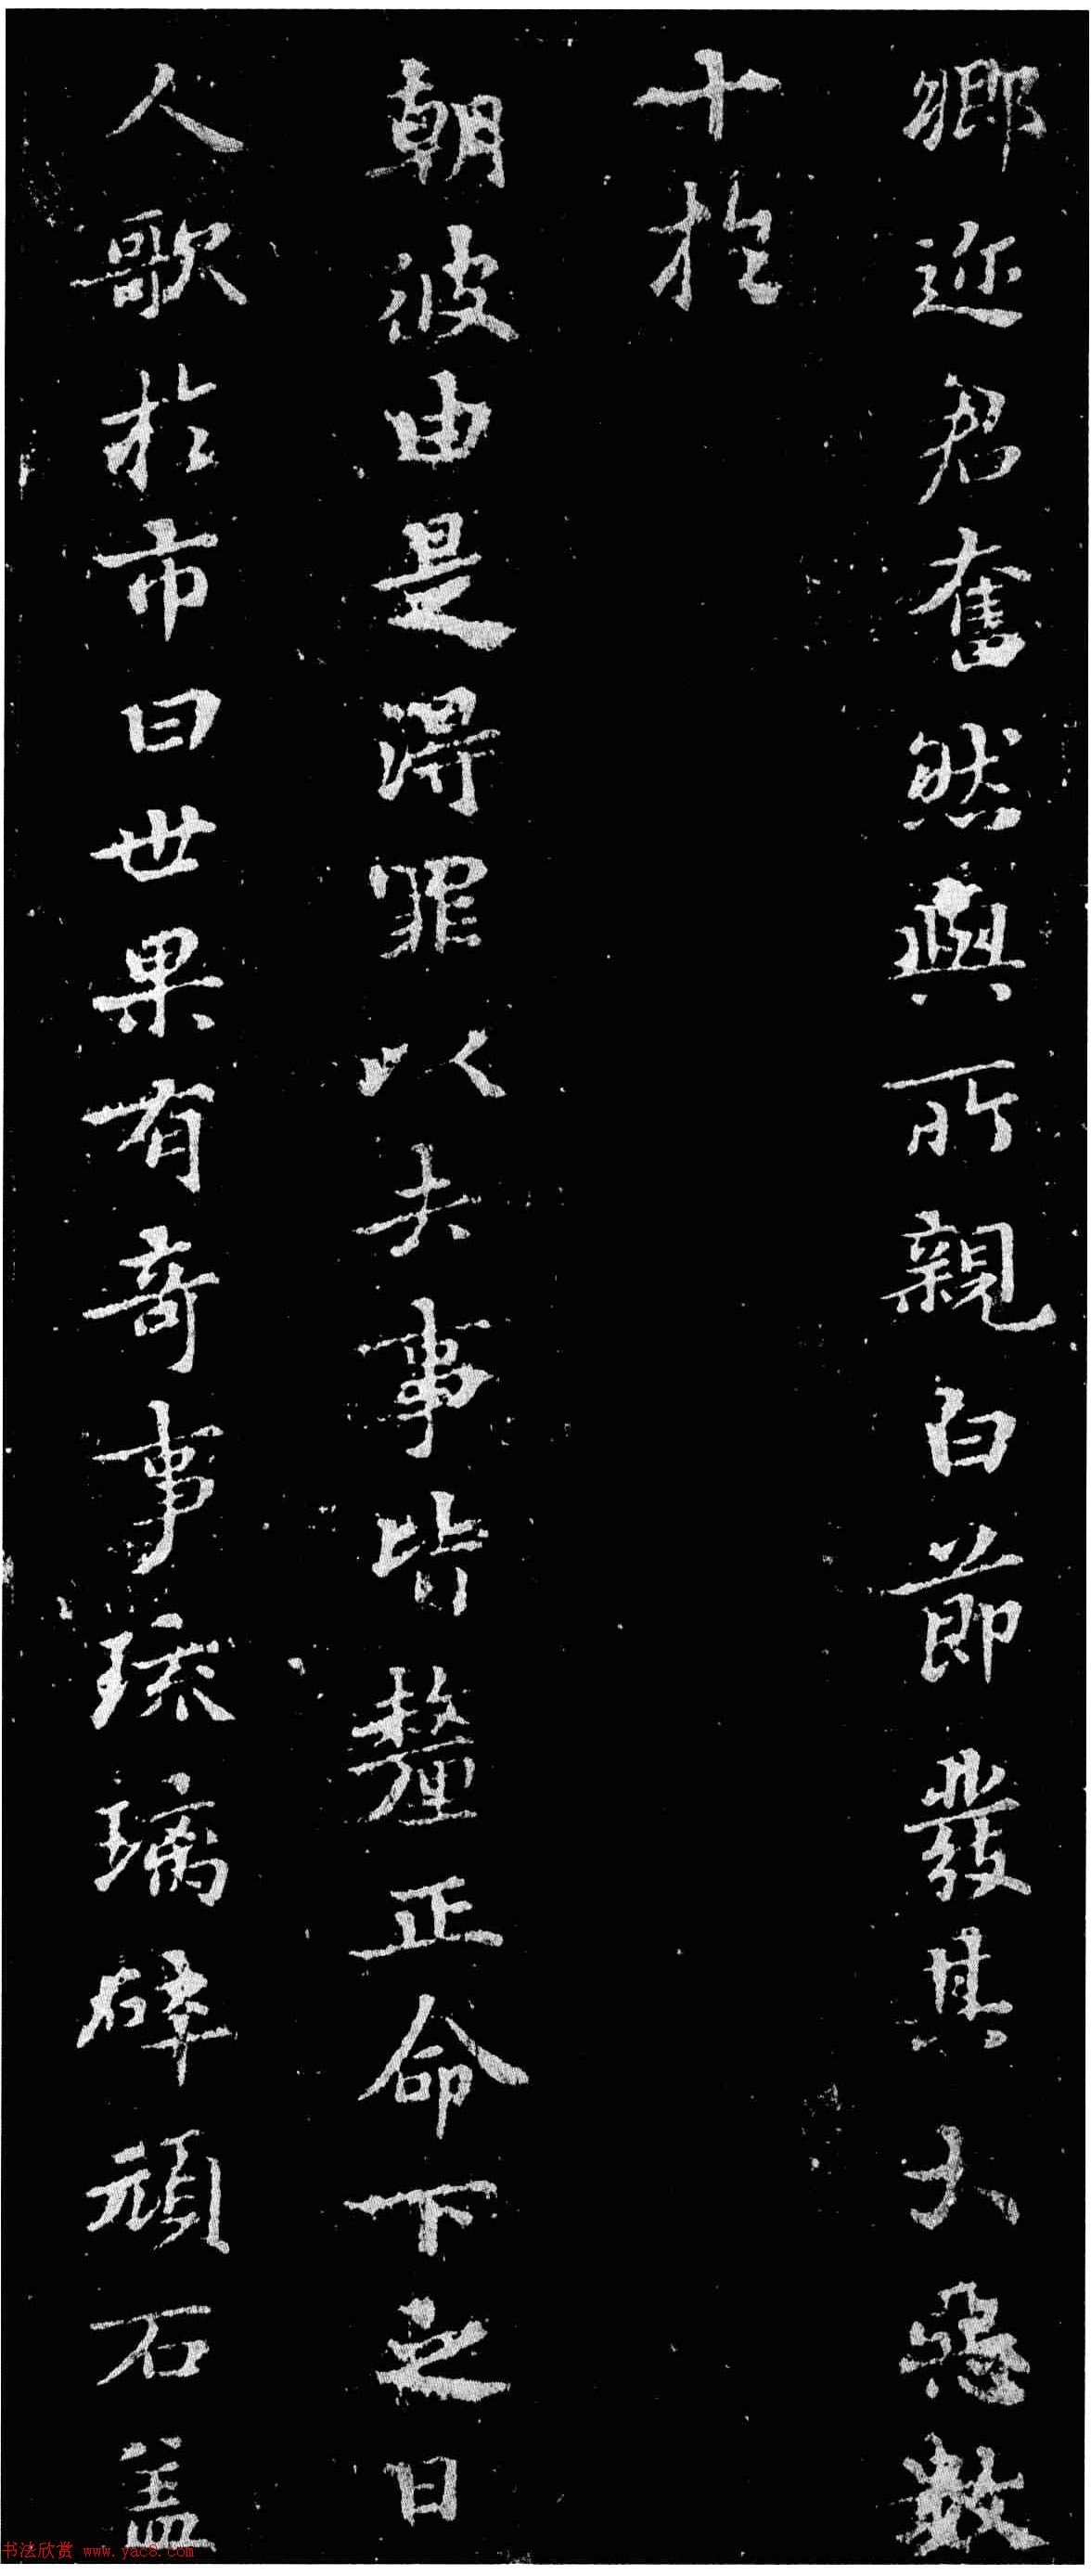 卿迩君奮然與所親白節發其大惡數
十於
朝彼由是得罪以去事皆釐正命下之日
人歌於市曰世果有奇事琉璃碎頑石盖
书法欣赏 www.yac8.com